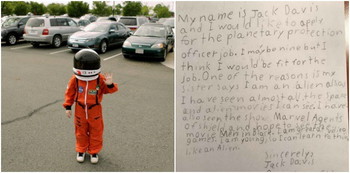 My name is Jack Davis
and I would like to apply
for the planetary protection
officer job. I may be nine but I
think I would be fit for the
job. One of the reasons is my
sister says I am an alien also
I have seen almost all the space
and alien movies I can see. I have
also seen the show Marvel Agents
of Shield and hope to see the
movie Men in Black. I am great at vidieo
games. I am young, so I can learn to think
like an Alien.
Sincerely,
Jack Davis